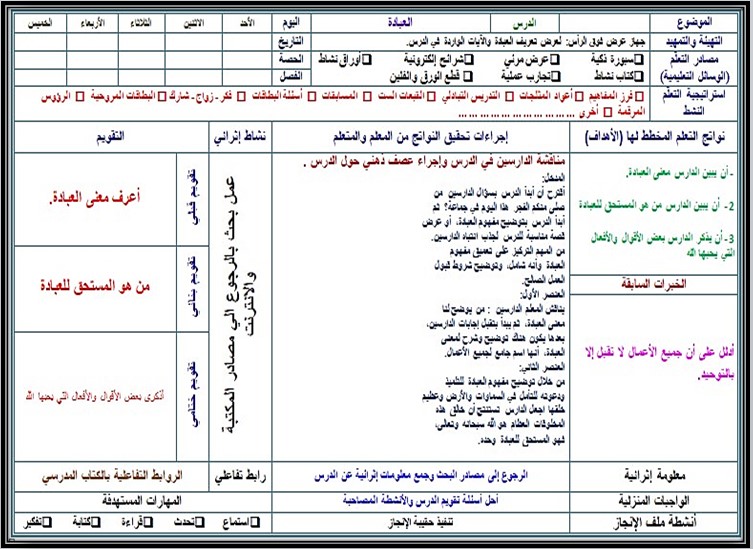 الموضوع
الدرس
العبادة
اليوم الأحد الاثنين الثلاثاء الأربعاء الخميس
التهيئة والتمهيد
جهاز عرض فوق الرأس: لعرض تعريف العبادة والآيات الواردة في الدرس.
التاريخ
مصادر التعلم
(الوسائل التعليمية)
سبورة ذكية عرض مرئي شرائح إلكترونية أوراق نشاط
كتاب نشاط تجارب عملية قطع الورق والفلين
الحصة
الفصل
استراتيجية التعلم
النشط
فرز المفاهيم أعواد المثلجات التدريس التبادلي القبعات الست المسابقات أسئلة البطاقات فكر - زواج - شارك البطاقات المروحية الرؤوس
المرقمة أخرى ... ... ... ... ... ... ... ... ...
نواتج التعلم المخطط لها (الأهداف)
إجراءات تحقيق النواتج من المعلم والمتعلم
نشاط إثرائي
التقويم
- أن يبين الدارس معنى العبادة.
2- أن يبين الدارس من هو المستحق للعبادة
3- أن يذكر الدارس بعض الأقوال والأفعال
التي يحبها الله
الخبرات السابقة
أدلل على أن جميع الأعمال لا تقبل إلا
بالتوحيد.
مناقشة الدارسين في الدرس وإجراء عصف ذهني حول الدرس .
المدخل:
أقترح أن أبدأ الدرس بسؤال الدارسين من
صلى منكم الفجر هذا اليوم في جماعة؟ ثم
أبدأ الدرس بتوضيح مفهوم العبادة، أو عرض
قصة مناسبة للدرس لجذب انتباه الدارسين.
من المهم التركيز على تعميق مفهوم
العبادة وأنه شامل، وتوضيح شروط قبول
العمل الصالح.
العنصر الأول:
يناقش المعلم الدارسين : من يوضح لنا
معنى العبادة، ثم يبدأ بتقبل إجابات الدارسين،
بعدها يكون هناك توضيح وشرح لمعنى
العبادة، أنها اسم جامع لجميع الأعمال.
العنصر الثاني:
من خلال توضيح مفهوم العبادة للتلميذ
ودعوته للتأمل في السماوات والأرض وعظيم
خلقها اجعل الدارس تستنتج أن خالق هذه
المخلوقات العظام هو الله سبحانه وتعالى،
فهو المستحق للعبادة وحده.
عمل بحث بالرجوع الي مصادر المكتبة
والانترنت
تقويم قبلي
أعرف معنى العبادة.
تقويم بنائي
من هو المستحق للعبادة
تقويم ختامي
أذكرى بعض الأقوال والأفعال التي يحبها الله
معلومة إثرائية
الرجوع إلى مصادر البحث وجمع معلومات إثرائية عن الدرس
رابط تفاعلي
الروابط التفاعلية بالكتاب المدرسي
الواجبات المنزلية
أحل أسئلة تقويم الدرس والأنشطة المصاحبة
المهارات المستهدفة
أنشطة ملف الإنجاز
تنفيذ حقيبة الإنجاز
استماع تحدث قراءة كتابة تفكير